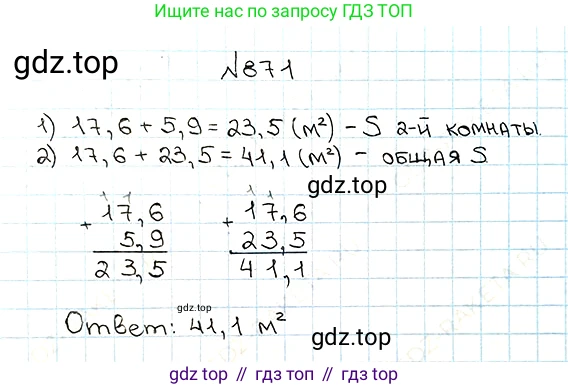 Ищите нас по запросу ГДЗ ТОП
gdz.top
№871
1) 17,6 + 5,9 = 23,5 (м²) – S 2-й комнаты.
2) 17,6 + 23,5 = 41,1 (м²) – общая S
gdz.top
1 1 1 1
+ 17,6 + 17,6
5,9 23,5
23,5 41,1
gdz.top
Ответ: 41,1 м²
gdz.top
gdz.top // гдз.топ // gdz.top // гдз.топ